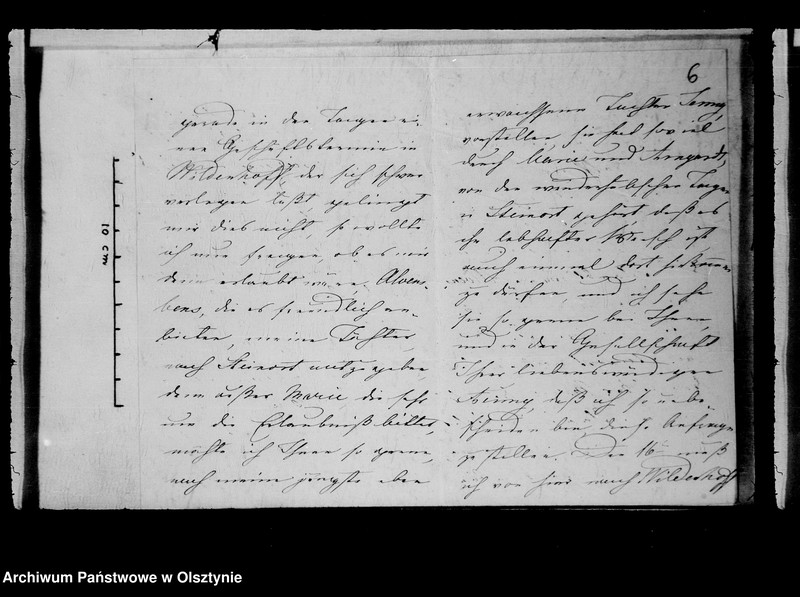 6
gerade in den Tagen ei-
nen Geschäftstermin in
Wildenhoff, der sich schwer
verlegen läßt gelingt
mir dies nicht, so wollte
ich nur fragen, ob es mir
dann erlaubt wäre, Alvens-
lebens, die es freundlich an-
bieten, meine Töchter
nach Steinort mitzugeben,
denn außer Marie die sehr
um die Erlaubniß bittet,
möchte ich Ihnen so gerne,
auch meine jüngste eben
erwachsene Tochter Jenny,
vorstellen, sie hat so viel
durch Marie und Armgard,
von den wunderhübschen Tagen
in Steinort gehört daß es
ihr lebhafter Wunsch ist
auch einmal dort hinkommen
zu dürfen, und ich sehe
sie so gerne bei Ihnen,
und in der Gesellschaft
Ihrer liebenswürdigen
daß ich so unbe-
scheiden bin diese Anfrage
zu stellen. Den 16 muß
ich von hier nach Wildenhoff
10 cm
Archiwum Państwowe w Olsztynie